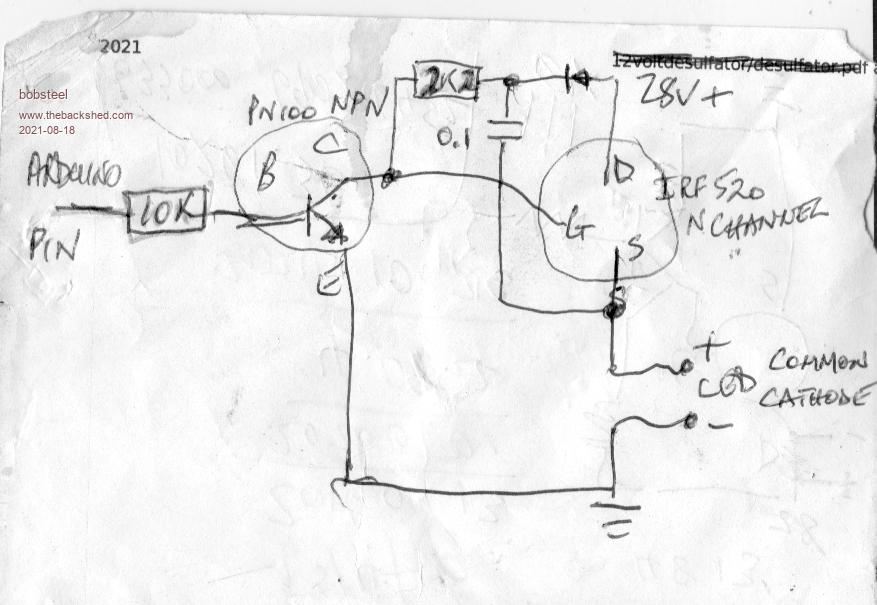 2021
12voltdesulfator/desulfator.pdf a
bobsteel
www.thebackshed.com
2021-08-18
2K2
28V+
PN100 NPN
0.1
C
B
ARDUINO
10K
PIN
E
D
IRF520
N CHANNEL
G
S
S
+
LED
COMMON
CATHODE
-